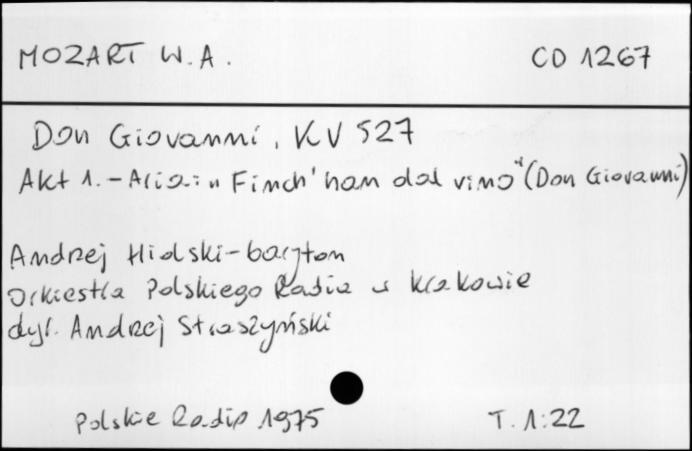 MOZART W.A.
CD 1267
Don Giovanni, KV 527
Akt 1. - Aria: „Finch'han dal vino" (Don Giovanni)
Andrzej Hiolski - baryton
Orkiestra Polskiego Radia w Krakowie
dyr. Andrzej Straszyński
Polskie Radio 1975
T. 1:22